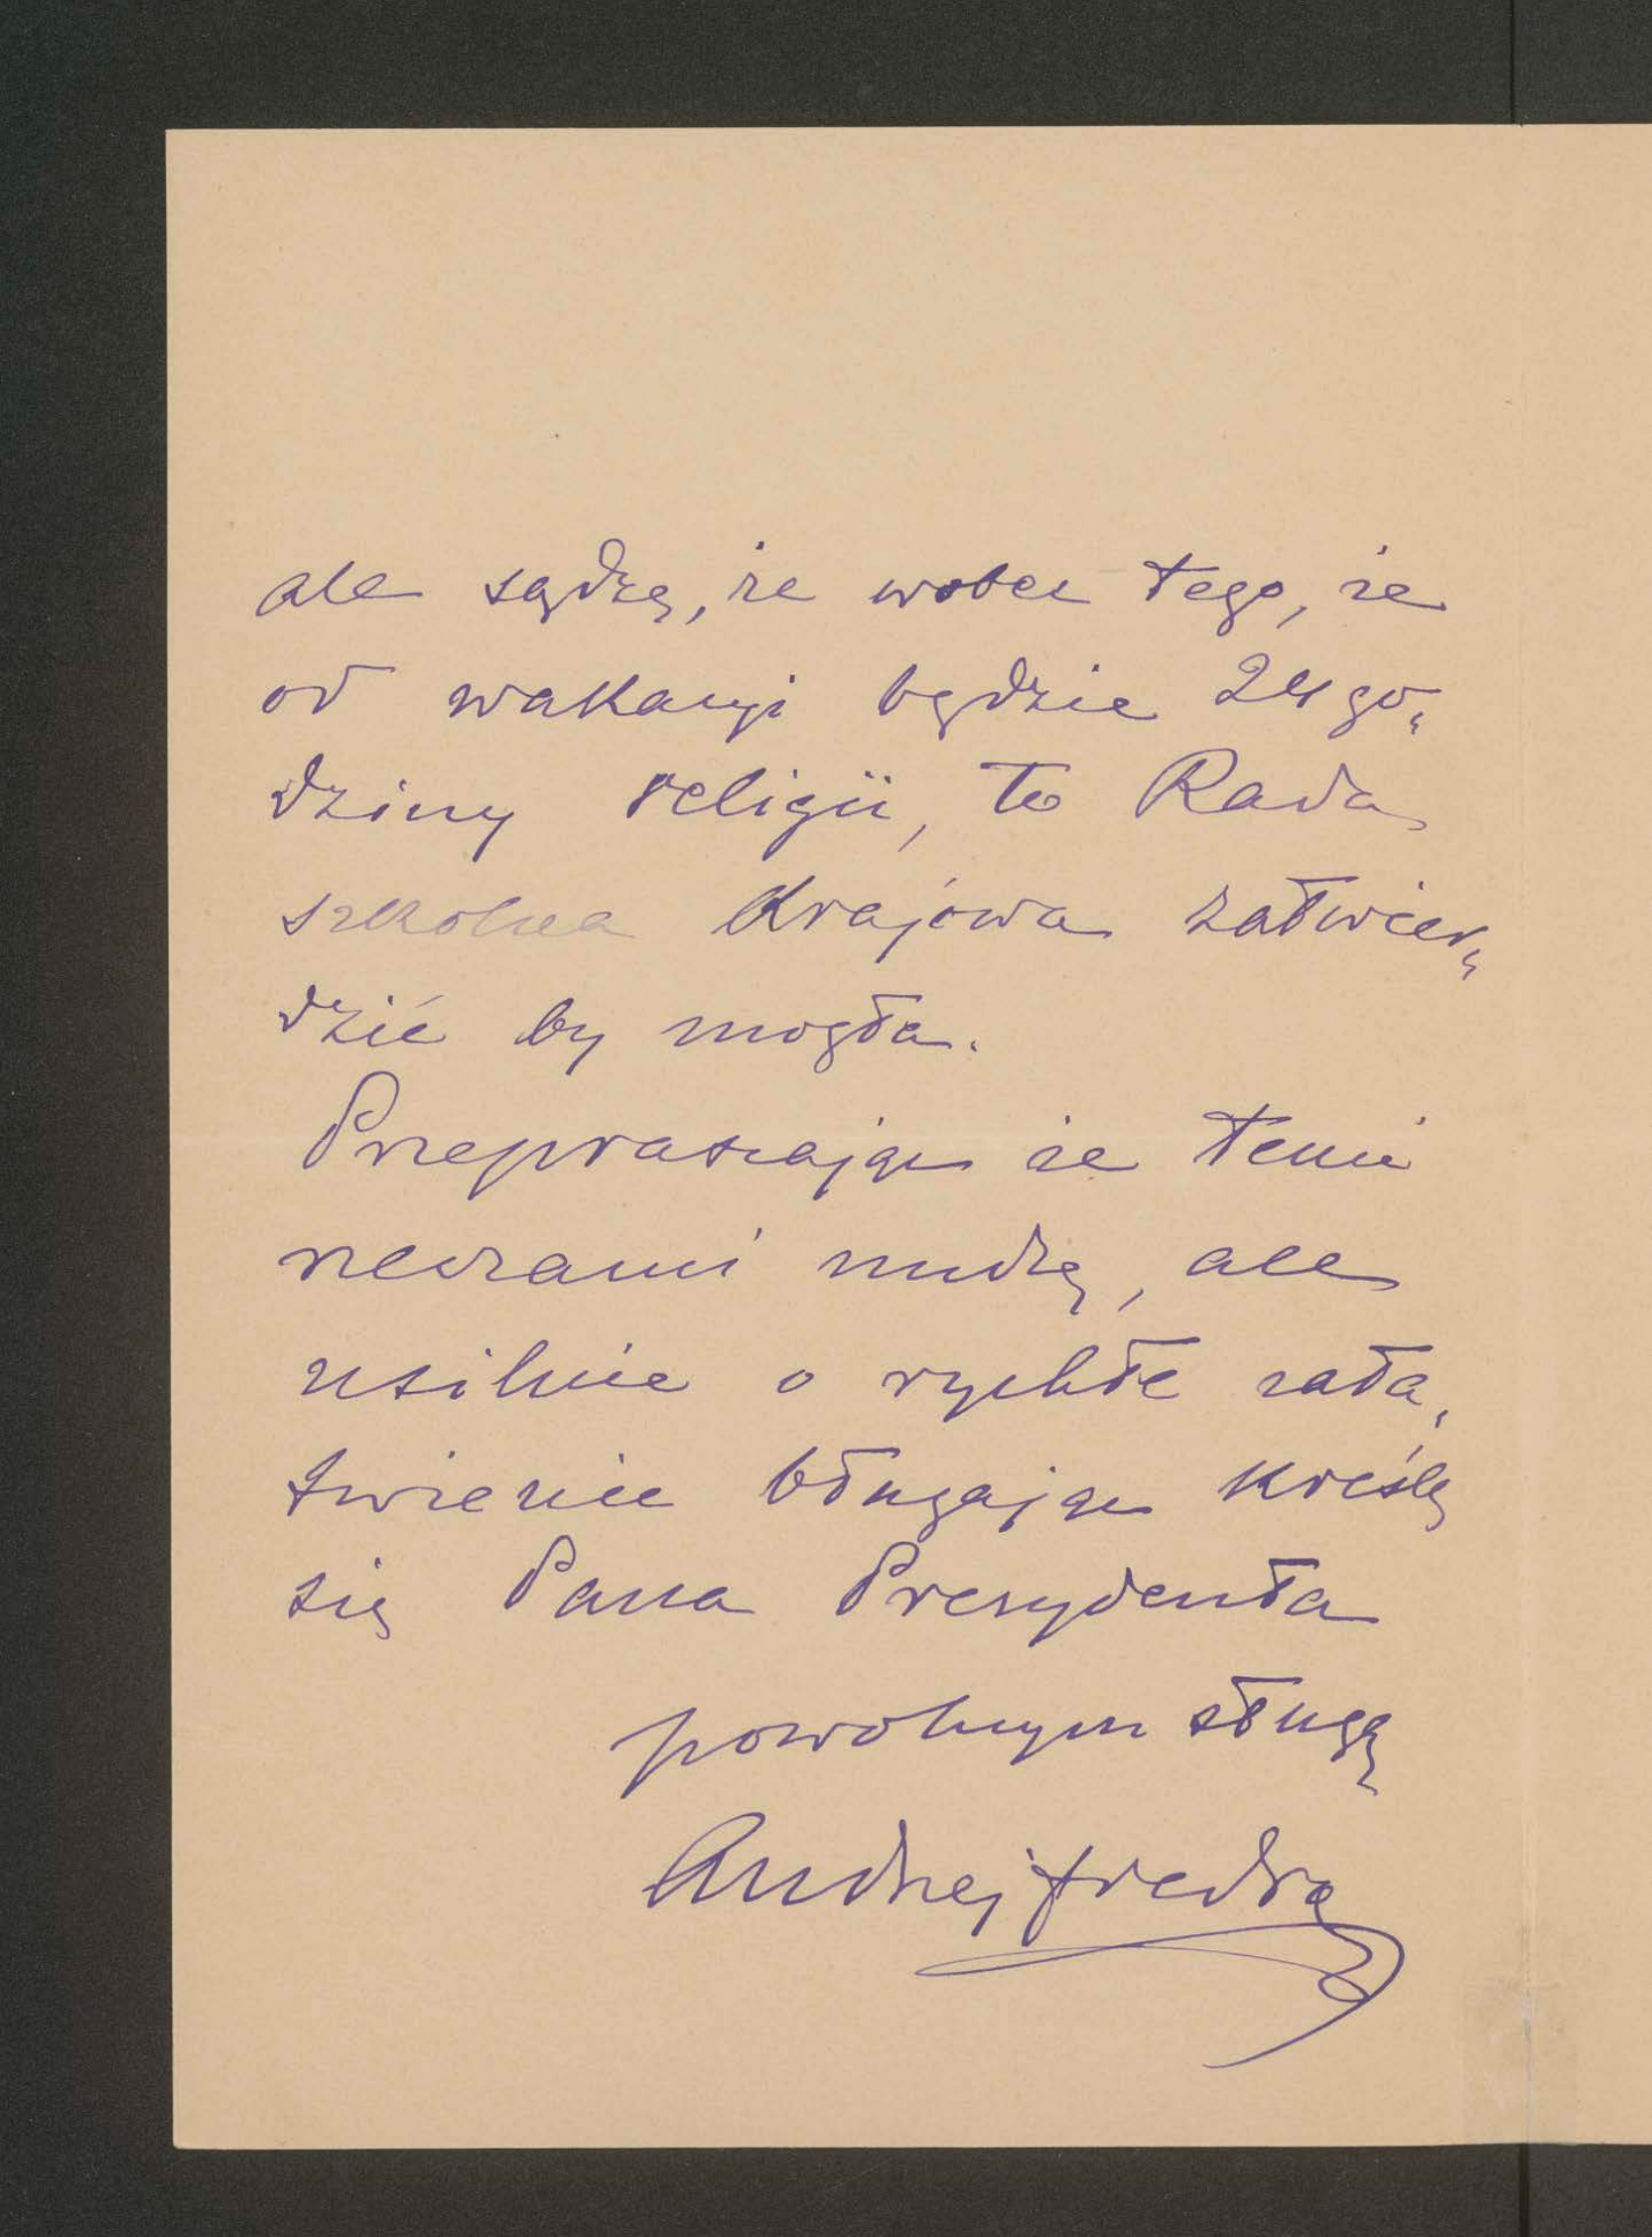 ale sądzę, że wobec tego, że
od wakacyi będzie 24 go„
dziny religii, to Rada
szkolna Krajowa zatwier„
dzić by mogła.
Przepraszając że temi
rzeczami nudzę, ale
usilnie o rychłe zała„
twienie błagając kreślę
się Pana Prezydenta
powolnym sługą
Andrzej Fredro